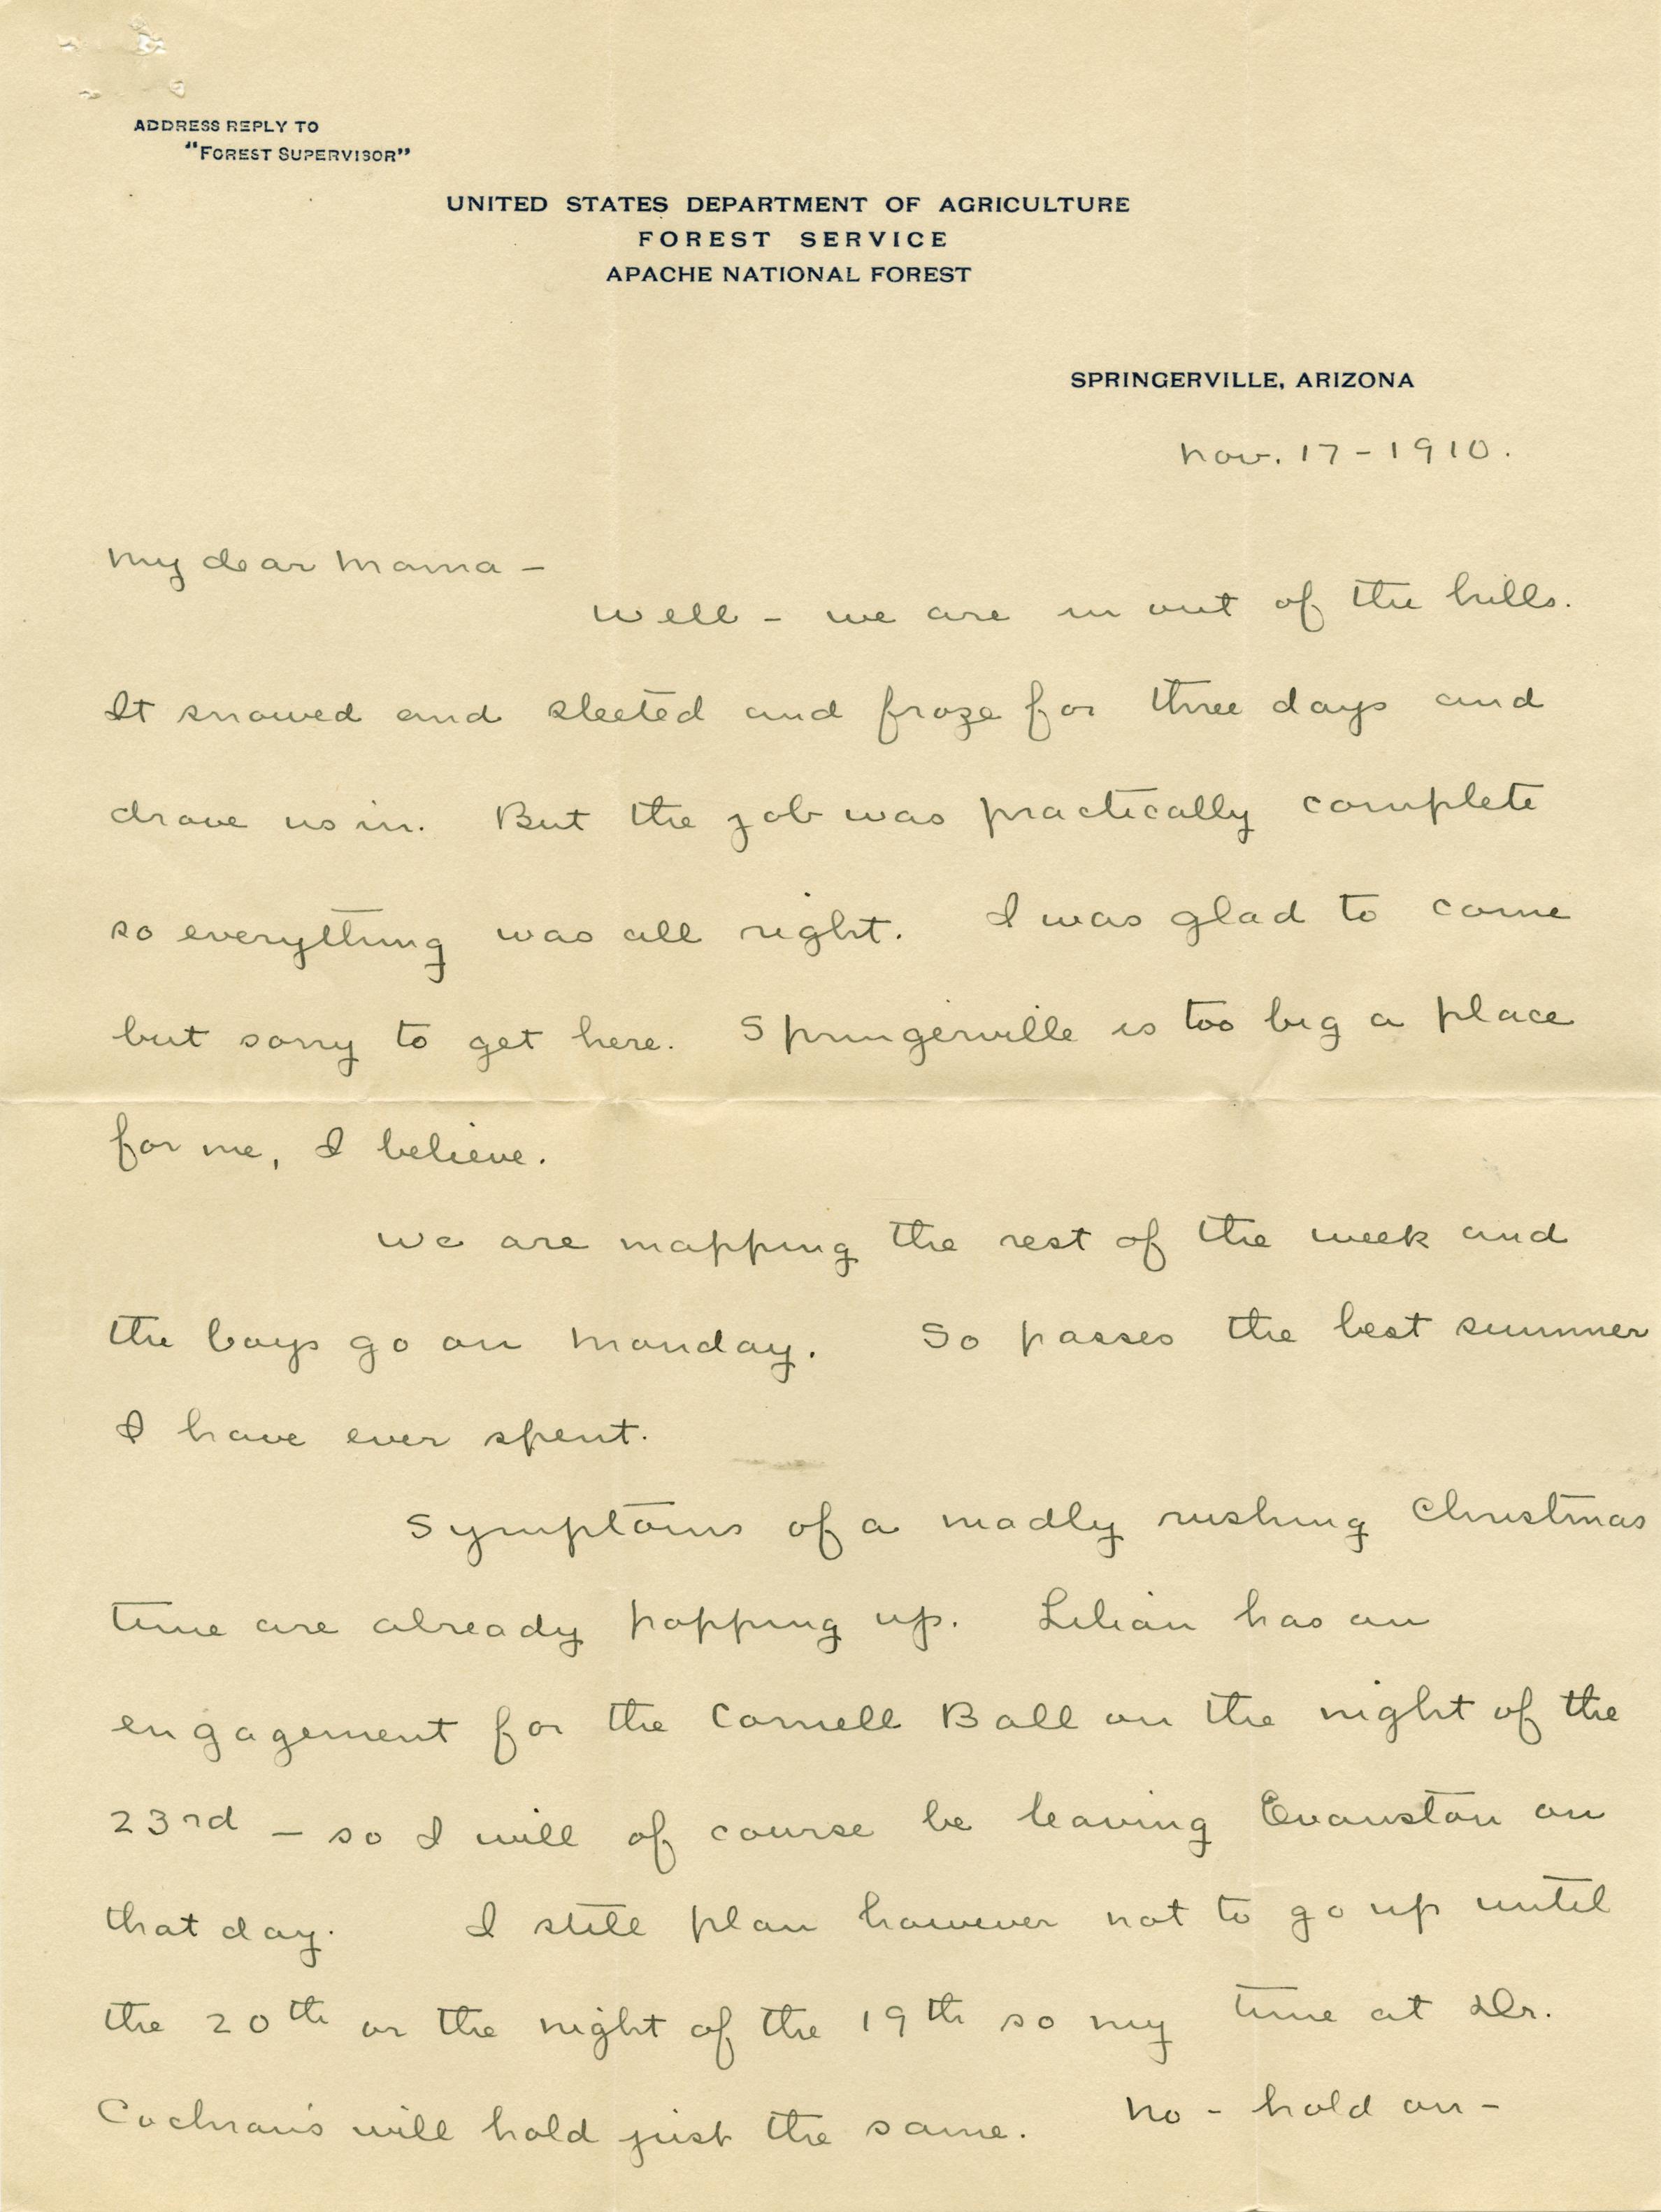 ADDRESS REPLY TO
"FOREST SUPERVISOR"
UNITED STATES DEPARTMENT OF AGRICULTURE
FOREST SERVICE
APACHE NATIONAL FOREST
SPRINGERVILLE, ARIZONA
Nov. 17-1910.
My dear Mama -
Well - we are in out of the hills.
It snowed and sleeted and froze for three days and
drove us in. But the job was practically complete
so everything was all right. I was glad to come
but sorry to get here. Springerville is too big a place
for me, I believe.
We are mapping the rest of the week and
the boys go on Monday. So passes the best summer
I have ever spent.
Symptoms of a madly rushing Christmas
time are already popping up. Lilian has an
engagement for the Cornell Ball on the night of the
23rd - so I will of course be leaving Evanston on
that day. I still plan however not to go up until
the 20th or the night of the 19th so my time at Dr.
Cochran's will hold just the same. No - hold on -